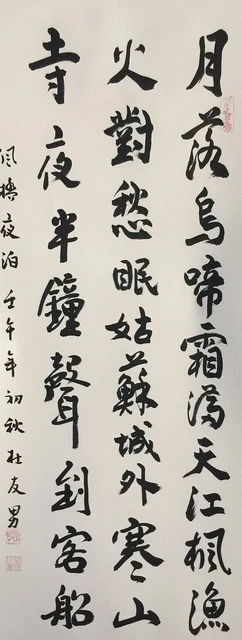 月落烏啼霜滿天江楓漁
火對愁眠姑蘇城外寒山
寺夜半鐘聲到客船
楓橋夜泊 壬午年初秋 杜友男